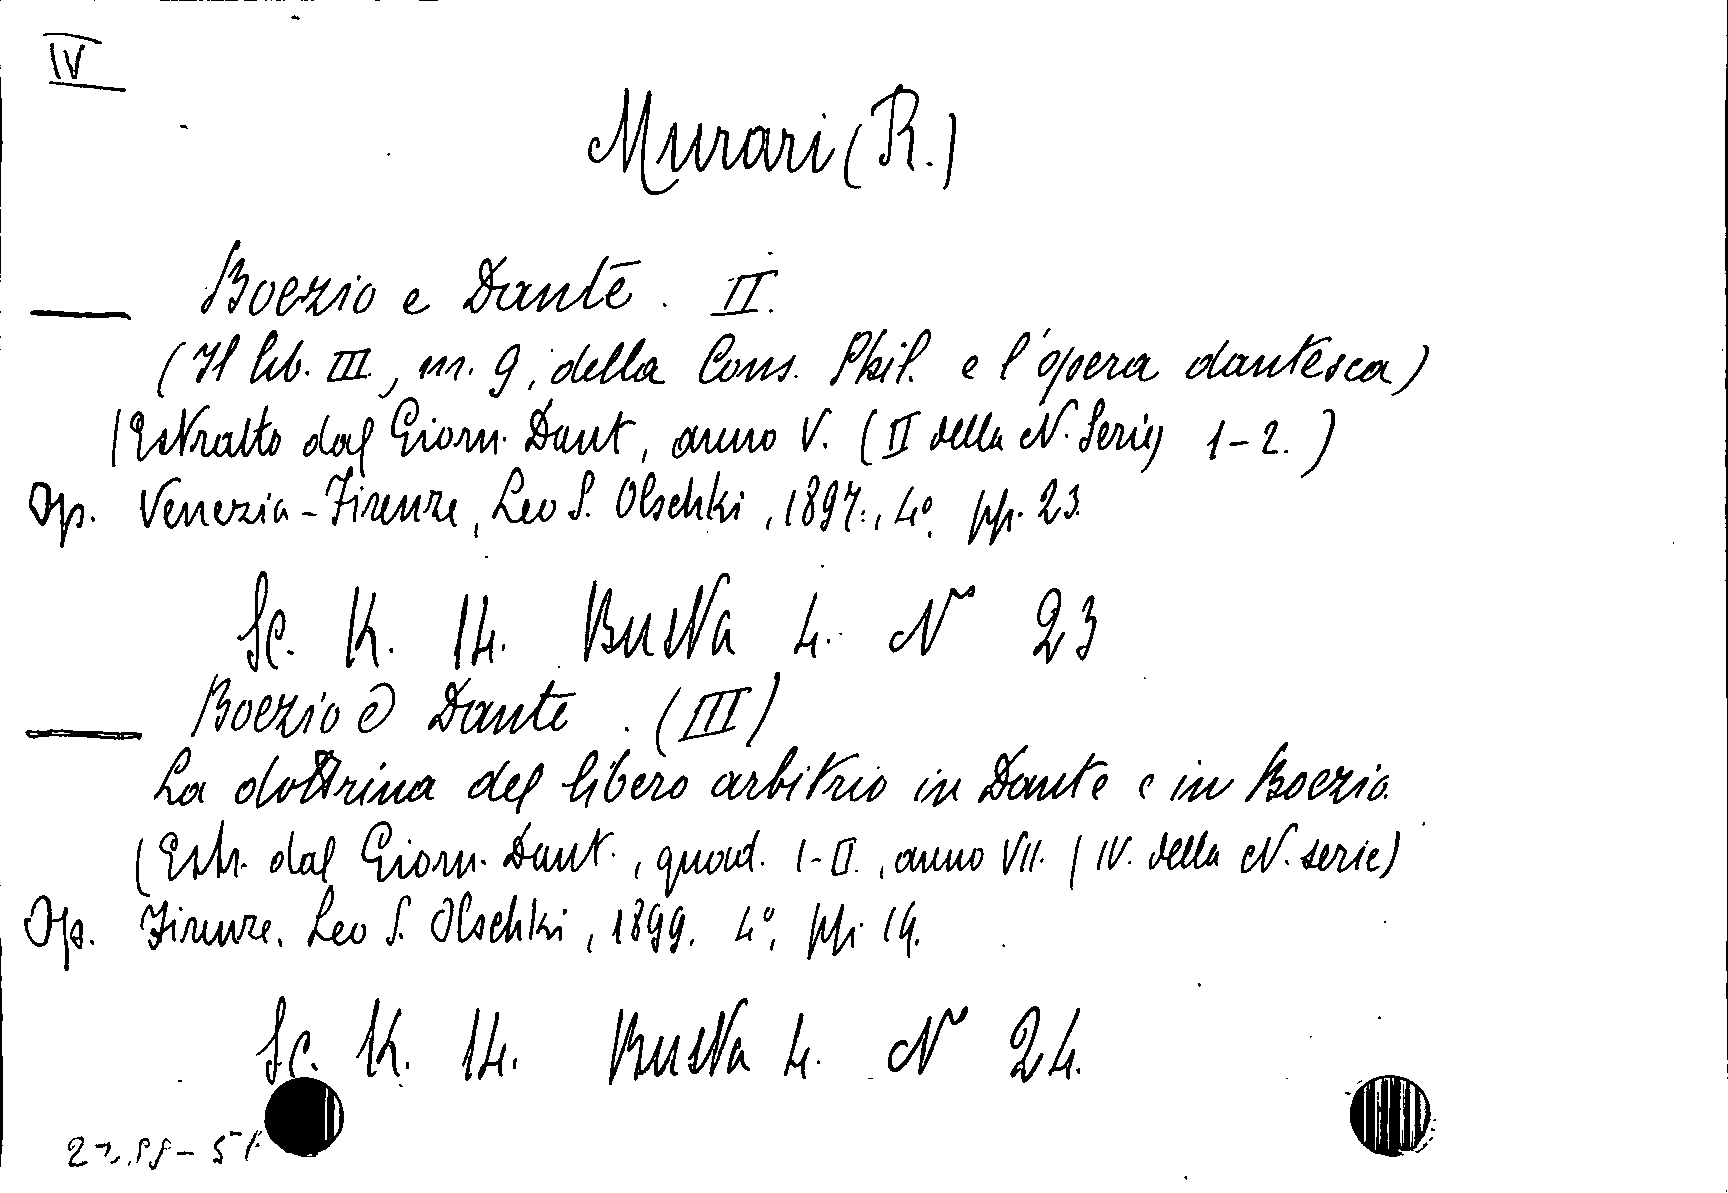 IV
Murari (R.)
— Boezio e Dante. II.
(Il lib. III, m. 9, della Cons. Phil. e l'opera dantesca)
(Estratto dal Giorn. Dant., anno V. (II della N. Serie) 1-2.)
Op. Venezia-Firenze, Leo S. Olschki, 1897., 4º. pp. 23.
Sc. K. 14. Busta 4. Nº 23
— Boezio e Dante. (III)
La dottrina del libero arbitrio in Dante e in Boezio.
(Estr. dal Giorn. Dant., quad. I-II., anno VII. (IV. della N. serie)
Op. Firenze. Leo S. Olschki, 1899. 4º. pp. 19.
Sc. K. 14. Busta 4. Nº 24.